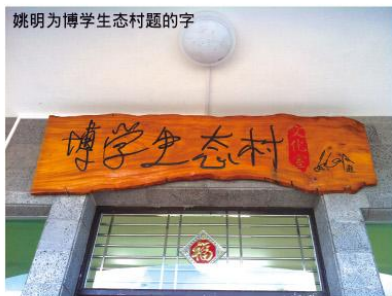 姚明为博学生态村题的字
博学生态村
福